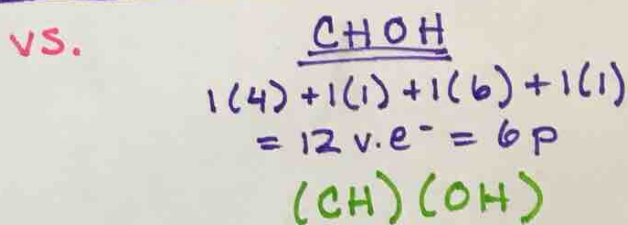 vs. CHOH
1(4) + 1(1) + 1(6) + 1(1)
= 12 v.e⁻ = 6 p
(CH)(OH)